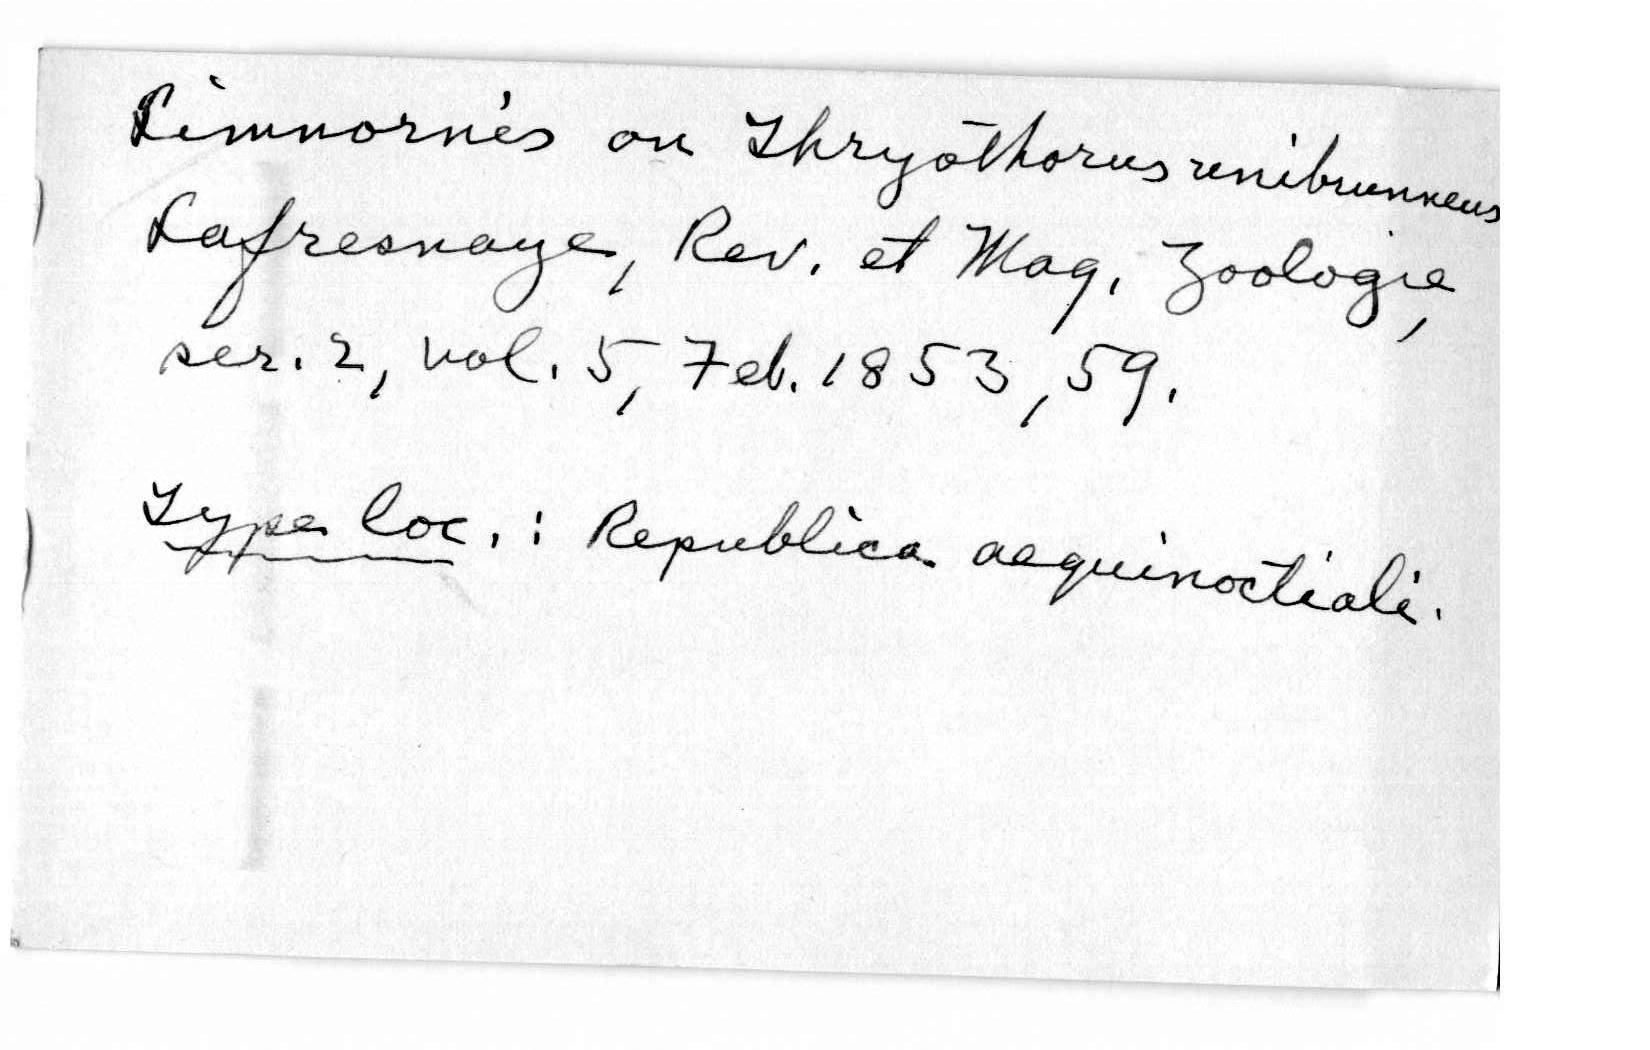 Limnornis ou Thryothorus unibrunneus
Lafresnaye, Rev. et Mag. Zoologie,
ser. 2, vol. 5, Feb. 1853, 59.
Type loc. : Republica aequinoctiali.